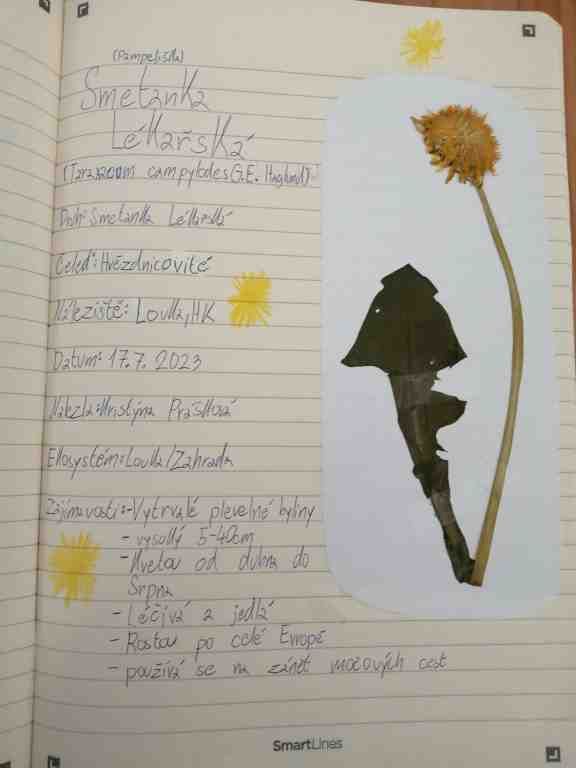 (Pampeliška)
Smetanka
Lékařská
(Taraxacum campylodes G.E. Haglund)
Druh: Smetanka Lékařská
Čeleď: Hvězdnicovité
Náleziště: Louka, HK
Datum: 17.7. 2023
Nálezla: Kristýna Prášková
Ekosystém: Louka/Zahrada
Zajímavosti: - Vytrvalé plevelné byliny
- vysoký 5-40cm
- Kvetou od dubna do
Srpna
- Léčivá a jedlá
- Rostou po celé Evropě
- používá se na zánět močových cest
SmartLines